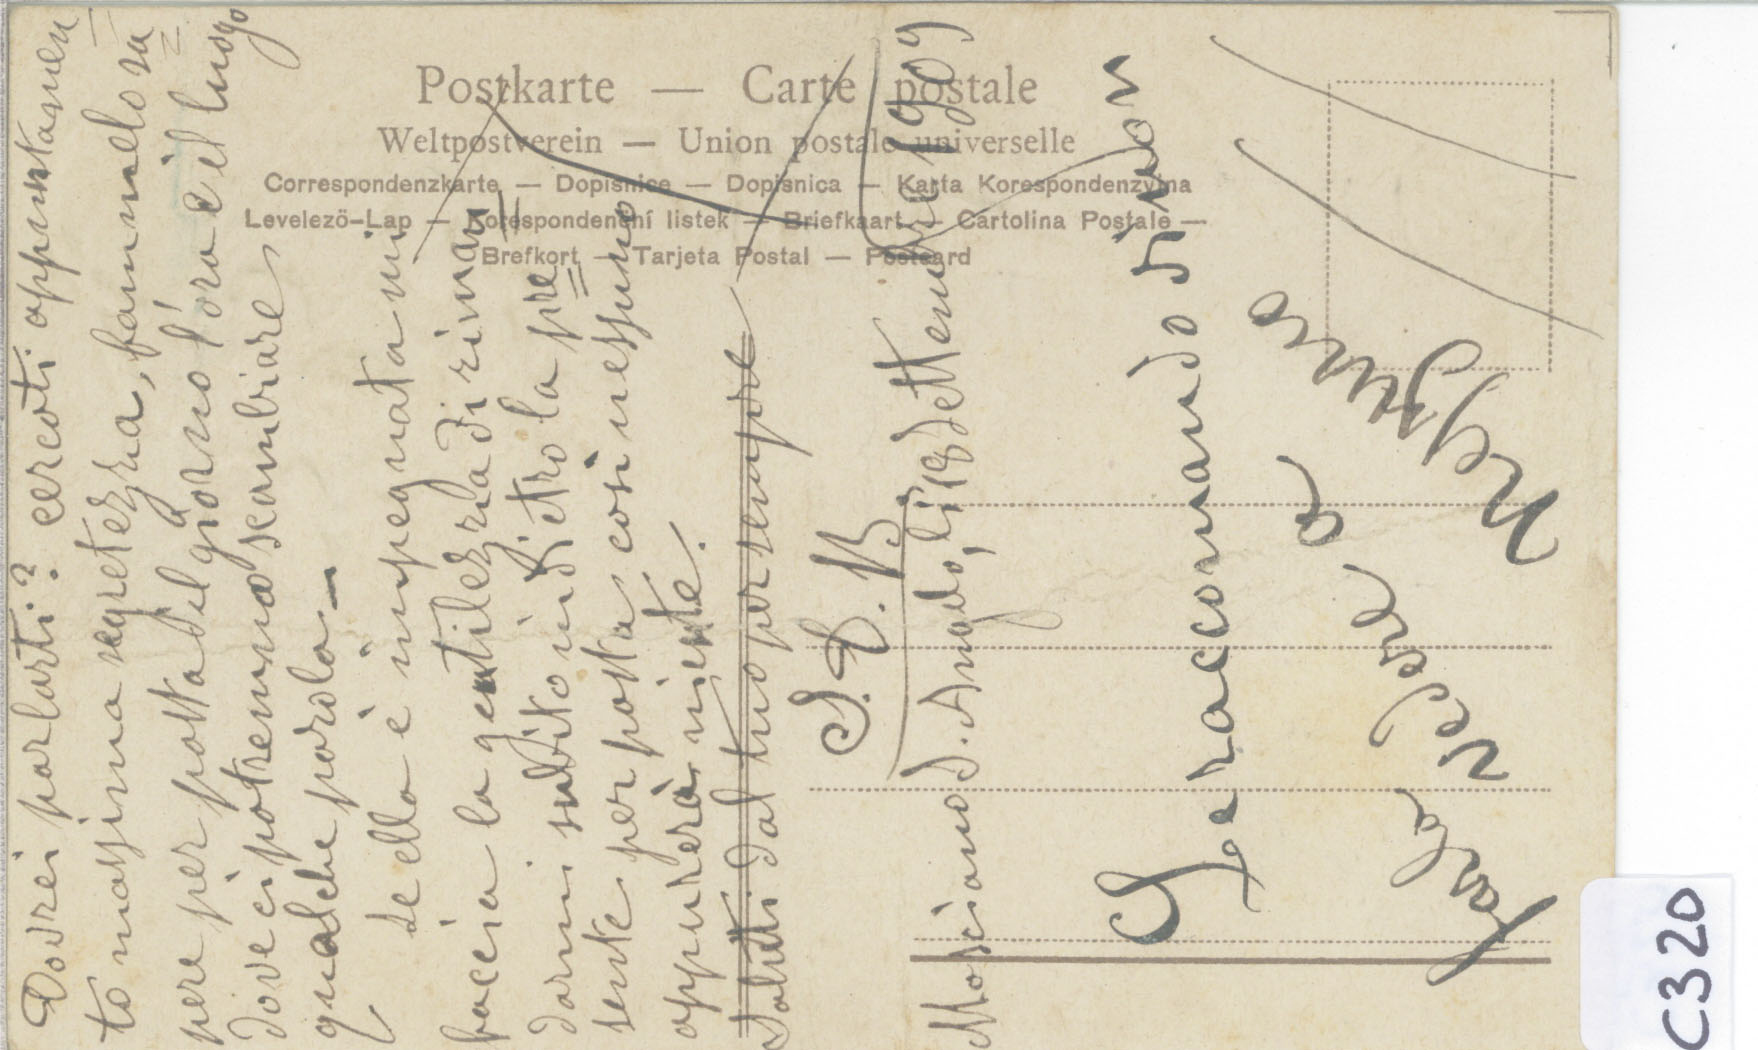 Postkarte — Carte postale
Weltpostverein — Union postale universelle
Correspondenzkarte — Dopisnice — Dopisnica — Karta Korespondenzyjna
Levelező-Lap — Korespondenční listek — Briefkaart — Cartolina Postale —
Brefkort — Tarjeta Postal — Postcard
Dovrei parlarti? cercoti appuntamen
to massima segretezza, fammelo sa
pere per posta il giorno l'ora e il luogo
dove ci potremmo scambiare
qualche parola —
Se ella è impegnata mi
faccia la gentilezza di riman
darmi subito indietro la pre
sente per posta così nessuno
appurerà niente.
Saluti dal tuo per sempre
S. B.
Mosciano S. Angelo, li 18 settembre 1909
Le raccomando di non
farla vedere a
Nessuno
C320